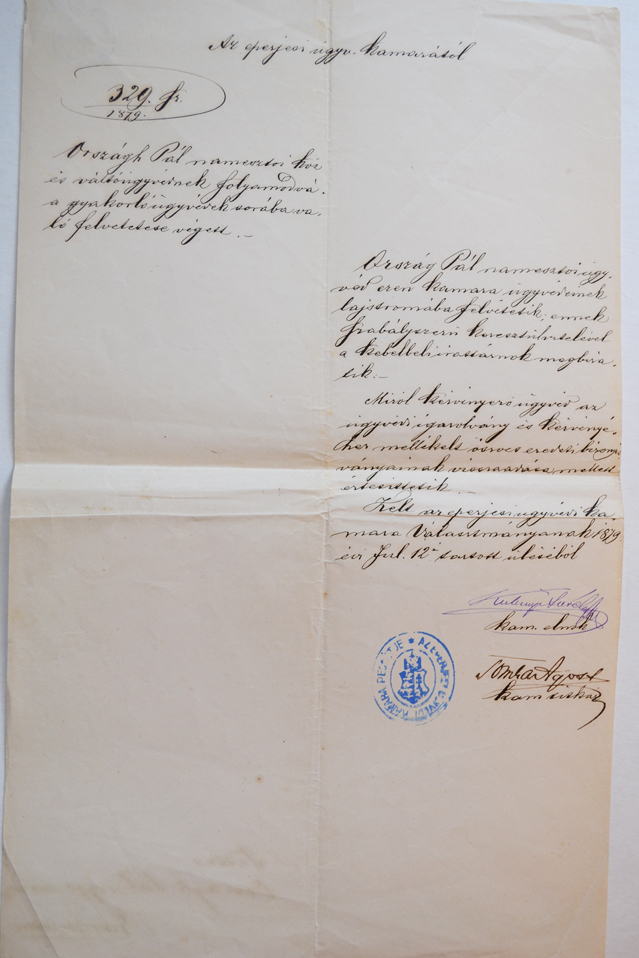 Az eperjesi ügyv. kamarától
329. sz.
1879.
Országh Pál namesztói köz
és váltóügyvédnek folyamodvá-
a gyakorló ügyvédek sorába va-
ló felvetetése végett. —
Ország Pál namesztói ügy-
véd ezen kamara ügyvédeinek
lajstromába felvétetik; ennek
szabályszerű keresztülvitelével
a kebelbeli irattárnok megbiza-
tik. —
Miről kérvényező ügyvéd az
ügyvédi igazolvány és kérvényé-
hez mellékelt összes eredeti bizonyít-
ványainak visszaadása mellett
értesittetik. —
Kelt az eperjesi ügyvédi ka-
mara Választmányának 1879
évi Jul. 12én tartott üléséből
kam. elnök
kam. titkár